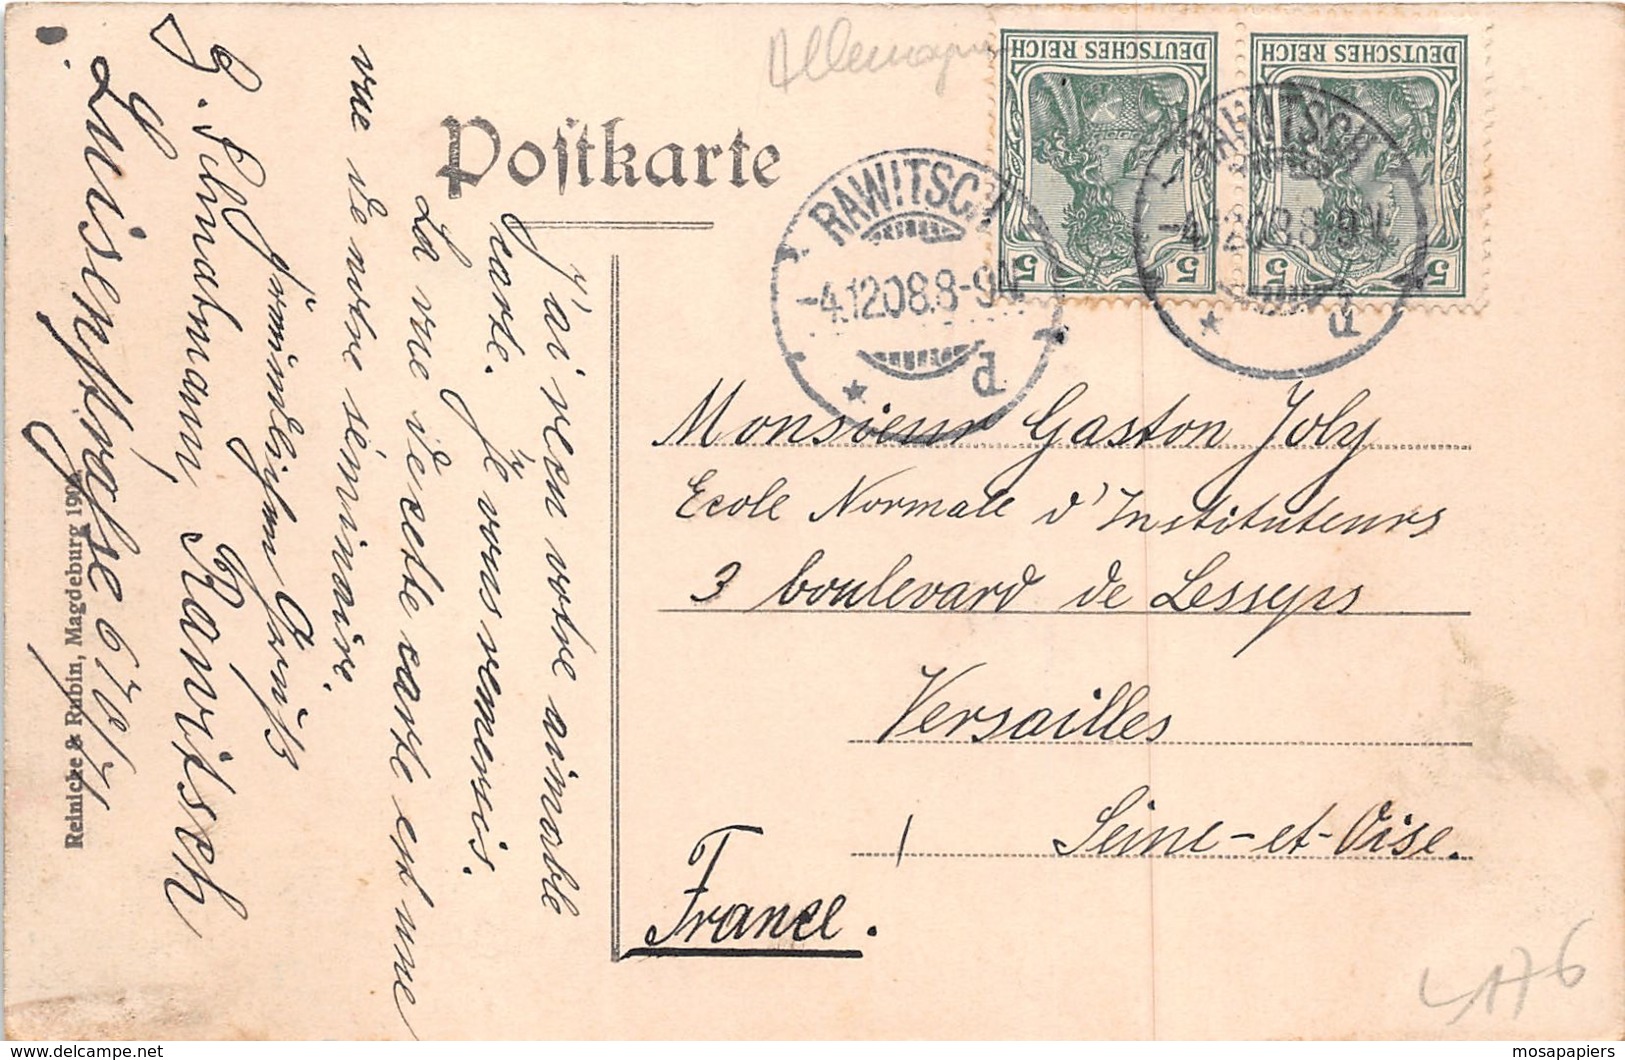 Allemagne
Postkarte
DEUTSCHES REICH
5
DEUTSCHES REICH
5
5
5
RAWITSCH
-4.12.08.8-9V.
* d
RAWITSCH
-4.12.08.8-9V.
* d
J'ai reçu votre aimable
carte. Je vous remercis.
La vue de cette carte est une
vue de notre séminaire.
Freundlichen Gruß
Schmalmann, Rawitsch
Luisenstraße 678/71
Monsieur Gaston Joly
Ecole Normale d'Instituteurs
3 boulevard de Lesseps
Versailles
Seine-et-Oise.
France.
Reinicke & Rubin, Magdeburg
176
mosapapiers
www.delcampe.net